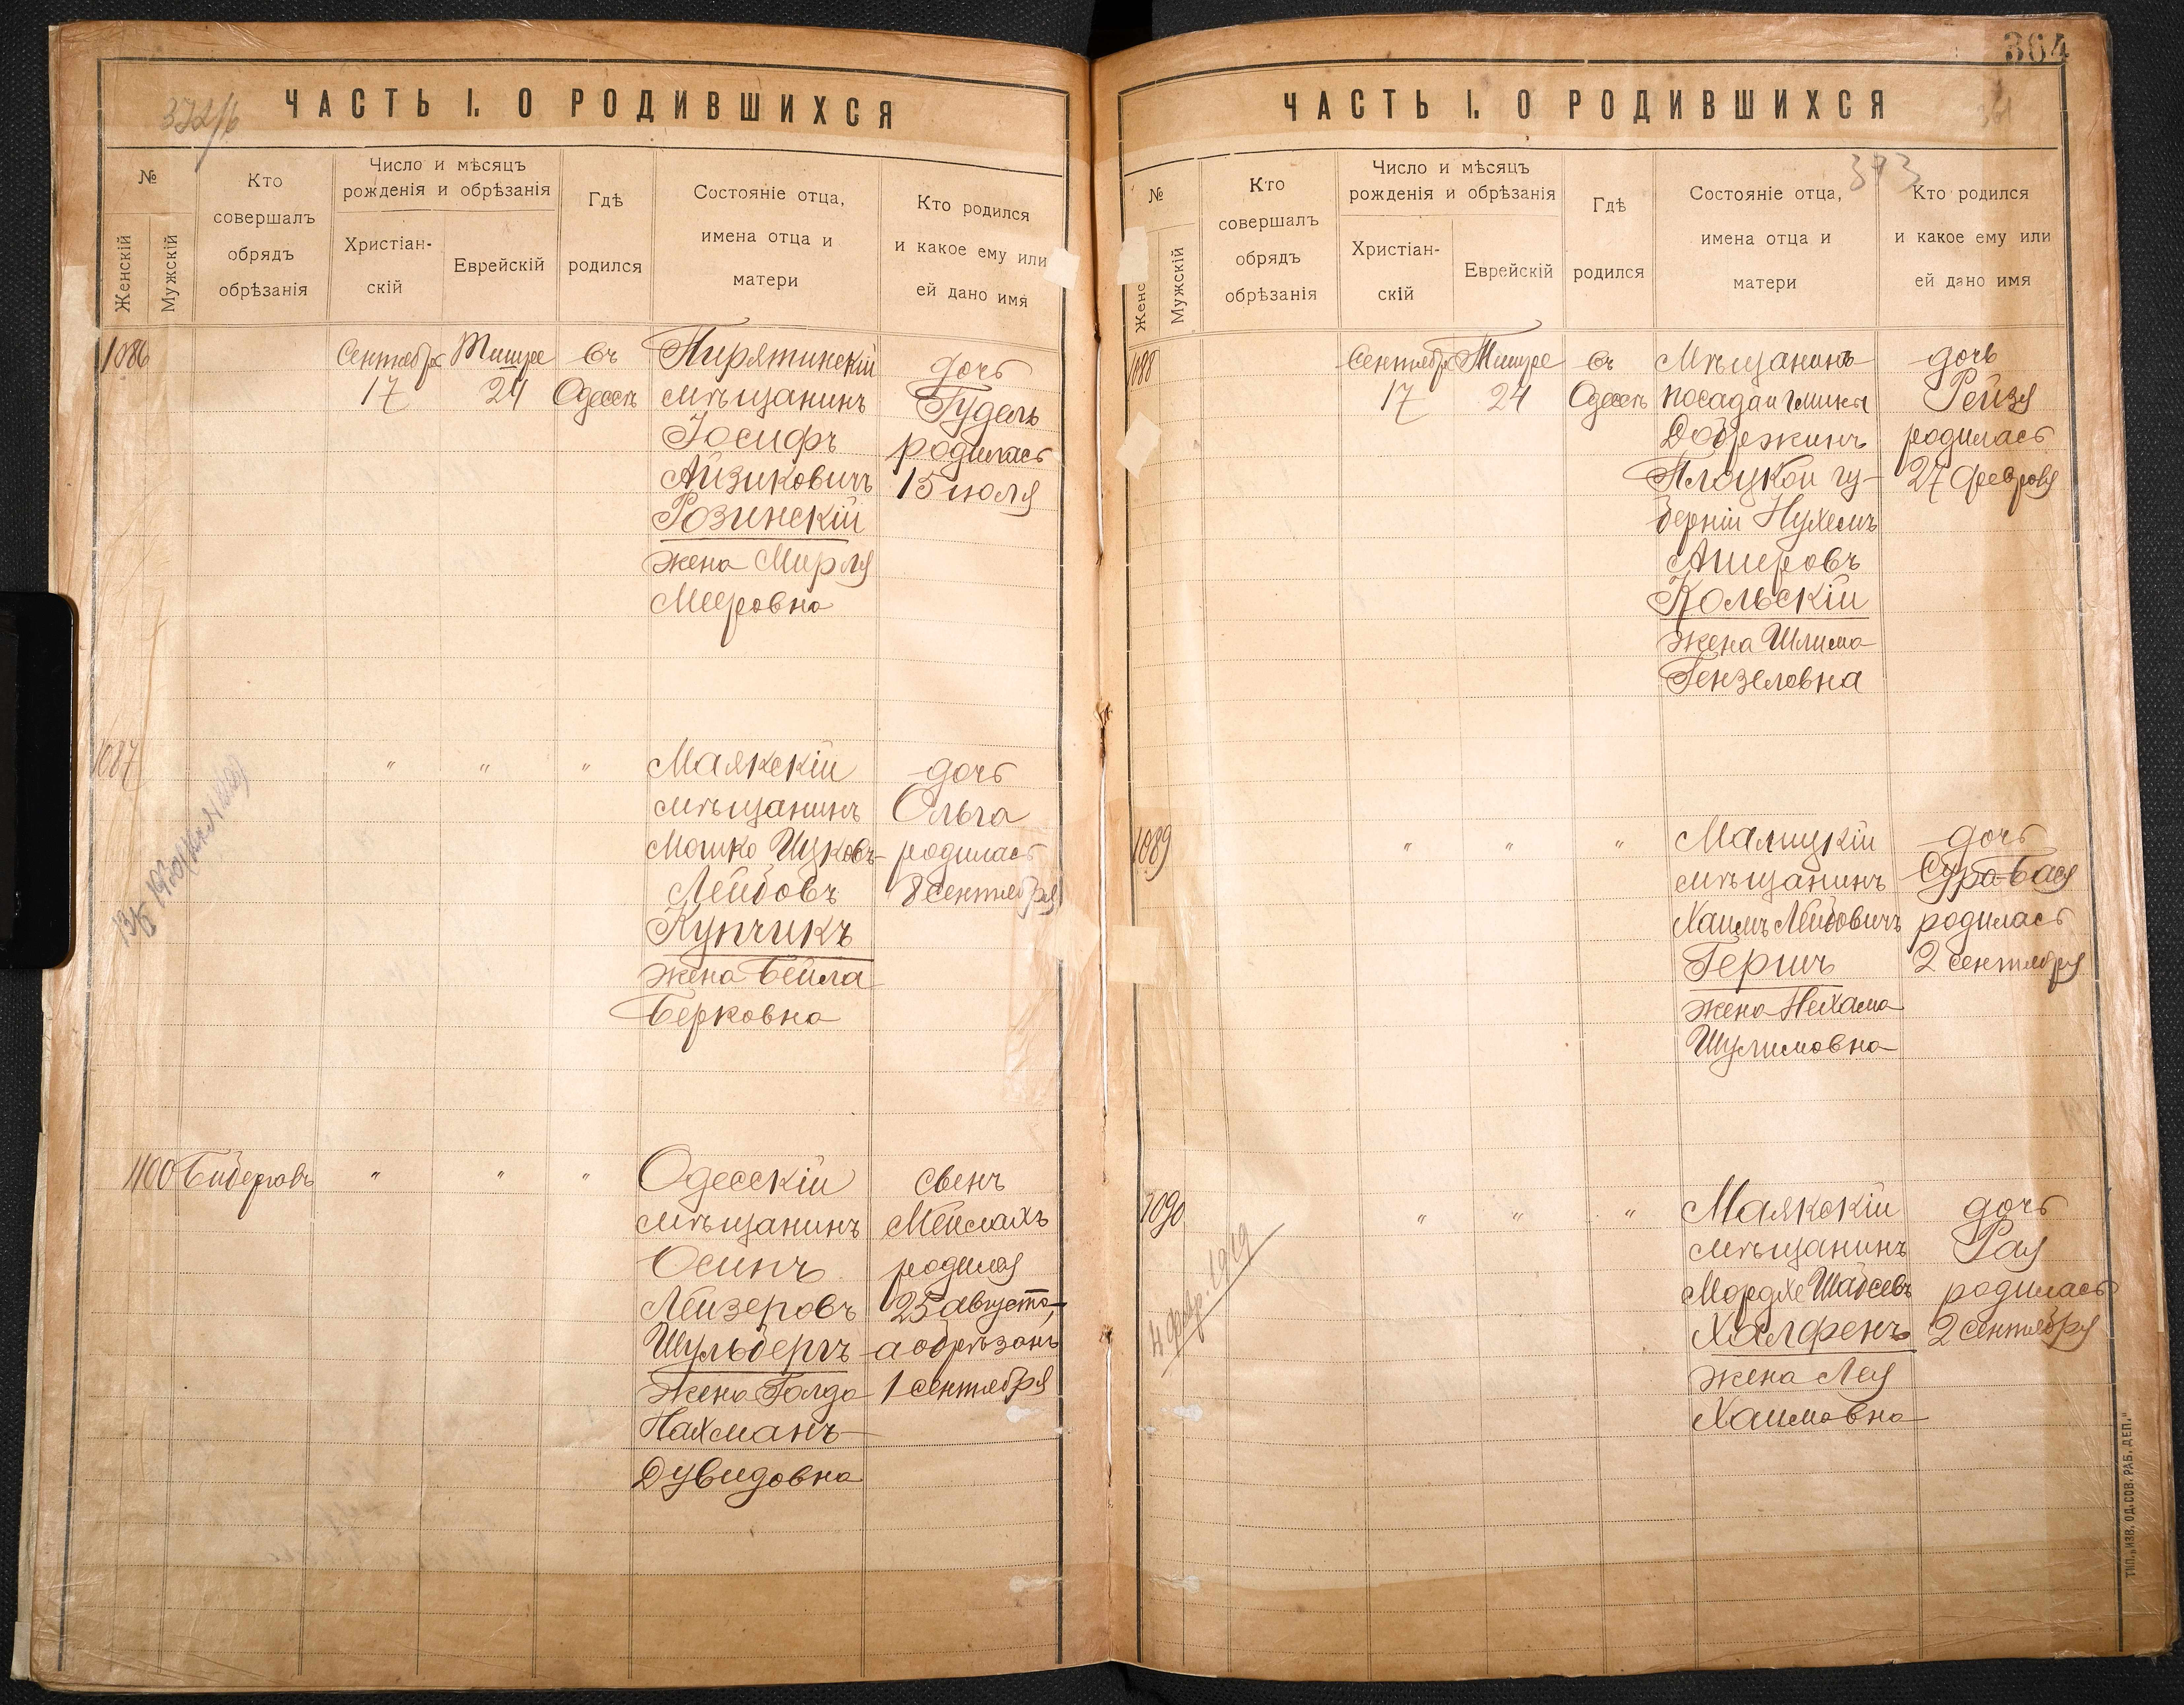 372/б
ЧАСТЬ I. О РОДИВШИХСЯ
№
Женскій
Мужскій
Кто
совершалъ
обрядъ
обрѣзанія
Число и мѣсяцъ
рожденія и обрѣзанія
Христіан-
скій
Еврейскій
Гдѣ
родился
Состояніе отца,
имена отца и
матери
Кто родился
и какое ему или
ей дано имя
1086
Сентября
17
Тишре
24
въ
Одессѣ
Пирятинскій
мѣщанинъ
Іосифъ
Айзиковичъ
Розинскій
жена Мирля
Мееровна
дочь
Гудель
родилась
15 июля
1087
"
"
"
Маякскій
мѣщанинъ
Мошко Ицковъ-
Лейбовъ
Купчикъ
жена Бейла
Берковна
дочь
Ольга
родилась
8 сентября
1100
Бидеровъ
"
"
"
Одесскій
мѣщанинъ
Осипъ
Лейзеровъ
Шульбергъ
жена Голда
Нахманъ-
Дувидовна
свенъ
Мейлахъ
родился
25 августа,
а обрѣзанъ
1 сентября
364
ЧАСТЬ I. О РОДИВШИХСЯ
361
373
№
Женс
Мужскій
Кто
совершалъ
обрядъ
обрѣзанія
Число и мѣсяцъ
рожденія и обрѣзанія
Христіан-
скій
Еврейскій
Гдѣ
родился
Состояніе отца,
имена отца и
матери
Кто родился
и какое ему или
ей дано имя
1088
Сентября
17
Тишре
24
въ
Одессѣ
Мѣщанинъ
посада
Добржинъ
Плоцкой гу-
берніи Нухемъ
Ашеровъ
Кольскій
жена Шлима
Гензеловна
дочь
Рейзя
родилась
27 февраля
1089
"
"
"
Малицкій
мѣщанинъ
Хаимъ Лейбовичъ
Гершъ
жена Нехама
Шулимовна
дочь
Сура-Бася
родилась
2 сентября
1090
"
"
"
Маякскій
мѣщанинъ
Мордхе Шабсевъ
Халфенъ
жена Лея
Хаимовна
дочь
Рая
родилась
2 сентября
4 февр. 1919
ТИП. „ИЗВ. ОД. СОВ. РАБ. ДЕП."